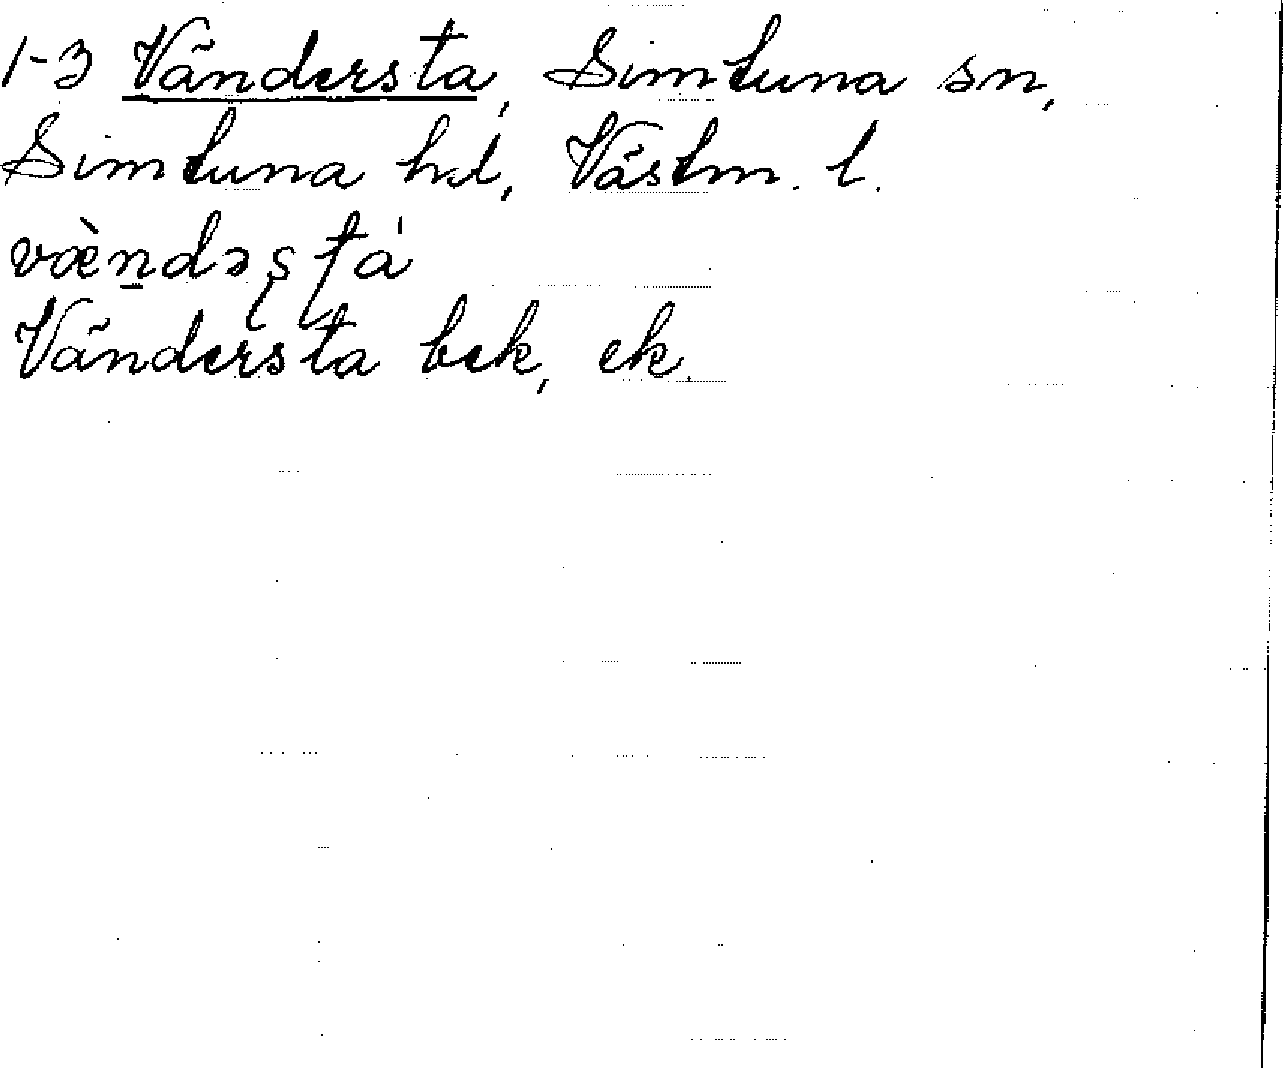 1-3 Vändersta, Simtuna sn,
Simtuna hd, Västm. l.
væ̀n̠dəʂʈá
Vändersta bek, ek.